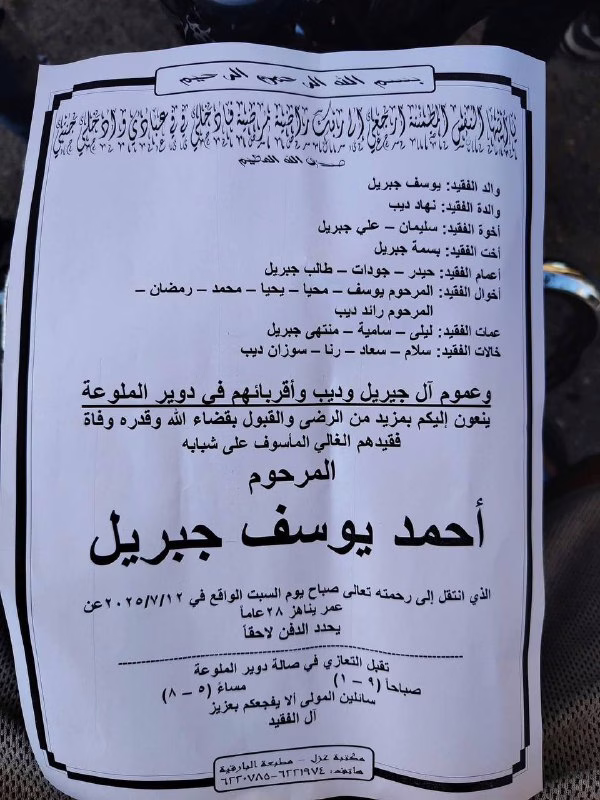 بسم الله الرحمن الرحيم
يا أيتها النفس المطمئنة ارجعي إلى ربك راضية مرضية فادخلي في عبادي وادخلي جنتي
صدق الله العظيم
والد الفقيد: يوسف جبريل
والدة الفقيد: نهاد ديب
أخوة الفقيد: سليمان – علي جبريل
أخت الفقيد: بسمة جبريل
أعمام الفقيد: حيدر – جودات – طالب جبريل
أخوال الفقيد: المرحوم يوسف – محيا – يحيا – محمد – رمضان –
المرحوم رائد ديب
عمات الفقيد: ليلى – سامية – منتهى جبريل
خالات الفقيد: سلام – سعاد – رنا – سوزان ديب
وعموم آل جبريل وديب وأقربائهم في دوير الملوعة
ينعون إليكم بمزيد من الرضى والقبول بقضاء الله وقدره وفاة
فقيدهم الغالي المأسوف على شبابه
المرحوم
أحمد يوسف جبريل
الذي انتقل إلى رحمته تعالى صباح يوم السبت الواقع في ٢٠٢٥/٧/١٢ عن
عمر يناهز ٢٨ عاماً
يحدد الدفن لاحقاً
تقبل التعازي في صالة دوير الملوعة
صباحاً (٩ – ١) مساءً (٥ – ٨)
سائلين المولى ألا يفجعكم بعزيز
آل الفقيد
مكتبة غزل – مطبعة البارقية
هاتف: ٦٢٢١٩٧٤–٦٢٢٠٧٨٥